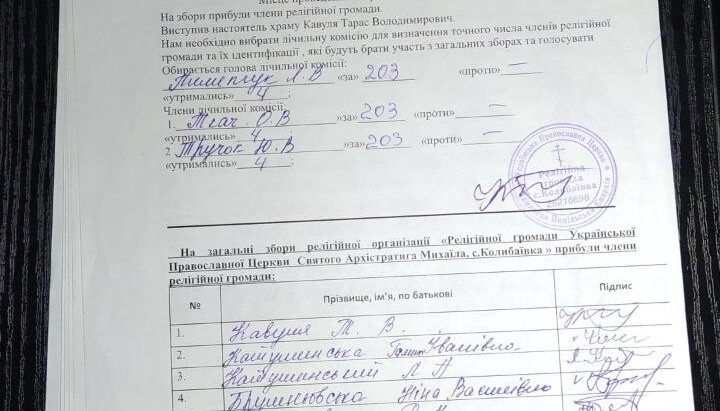 На збори прибули члени релігійної громади.
Виступив настоятель храму Кавуля Тарас Володимирович.
Нам необхідно вибрати лічильну комісію для визначення точного числа членів релігійної
громади та їх ідентифікації , які будуть брати участь з загальних зборах та голосувати
Обирається голова лічильної комісії:
Л. В «за» 203 «проти» —
«утримались» 4 ;
Члени лічильної комісії
1. Ткач. О. В »за» 203 «проти» —
«утримались» 4
2 Тручок Ю. В »за» 203 «проти» —
«утримались» 4 ;
Українська Православна Церква
Релігійна
громада
с.Колибаївка
26216698
На загальні збори релігійної організації «Релігійної громади Української
Православної Церкви Святого Архістратига Михаїла, с.Колибаївка » прибули члени
релігійної громади:
№ Прізвище, ім'я, по батькові Підпис
1. Кавуля Т. В.
2. Катушинська Іванівна
3. Катушинський Л А
4. Ніна Василівна